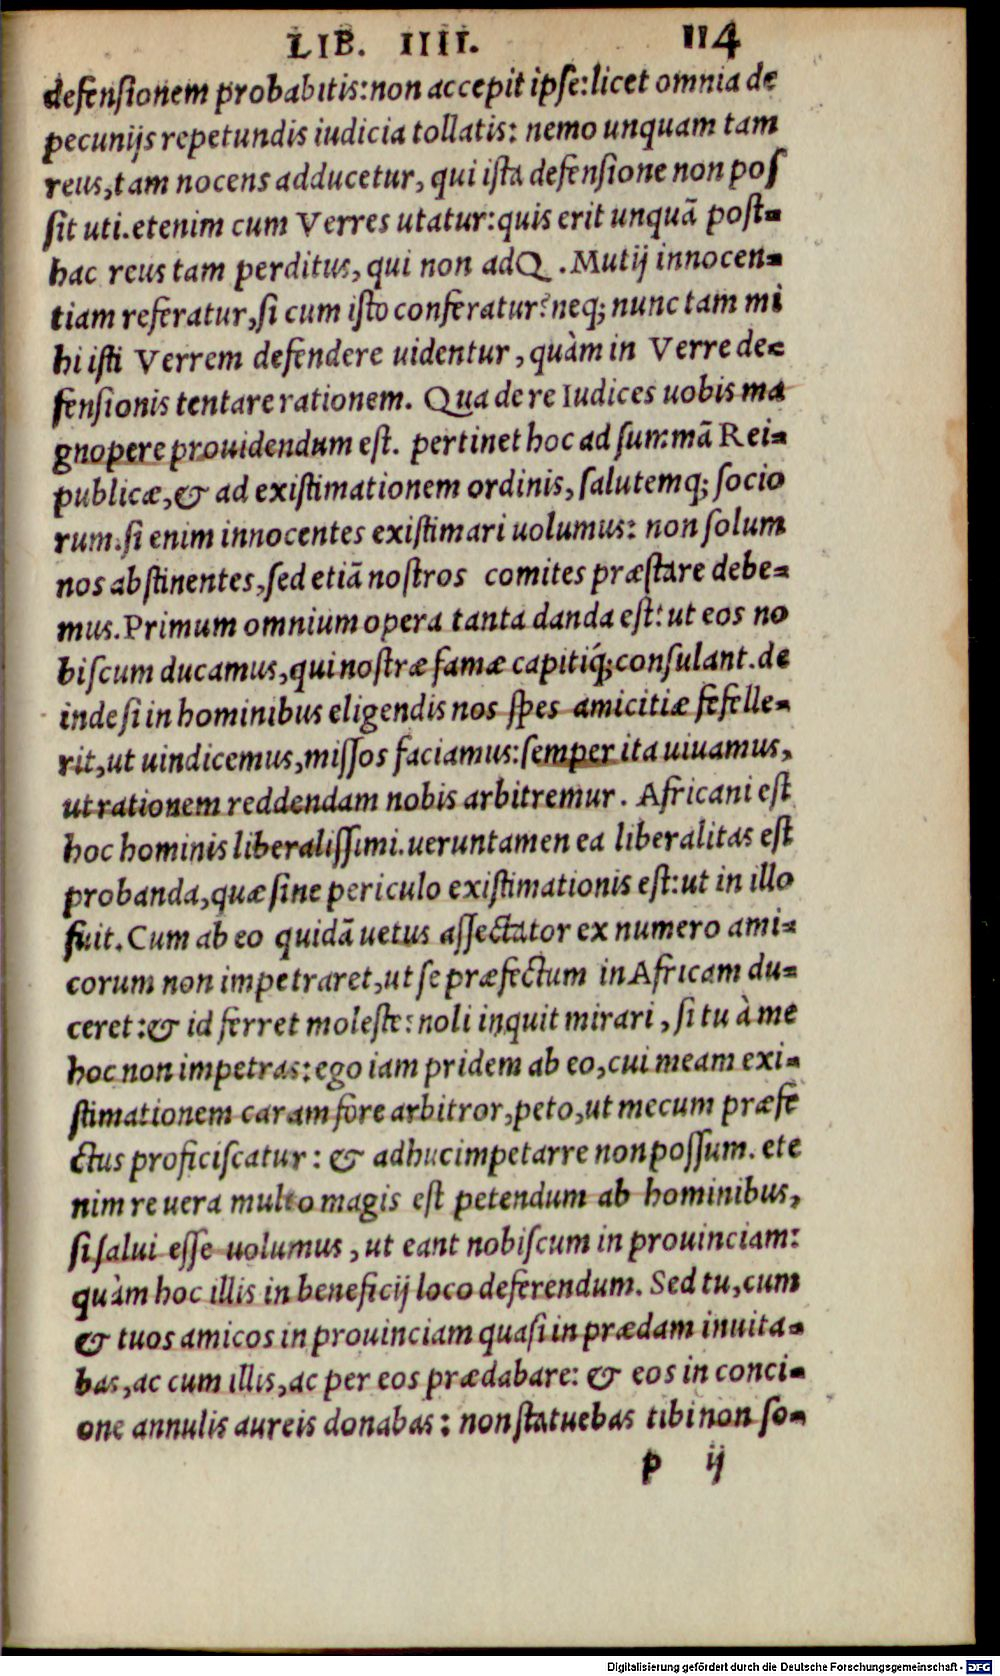 LIB. IIII. 114
defensionem probabitis:non accepit ipse:licet omnia de
pecunijs repetundis iudicia tollatis: nemo unquam tam
reus,tam nocens adducetur, qui ista defensione non pos
sit uti.etenim cum Verres utatur:quis erit unquā post=
hac reus tam perditus, qui non adQ .Mutij innocen=
tiam referatur,si cum isto conferatur?neq; nunc tam mi
hi isti Verrem defendere uidentur, quàm in Verre de=
fensionis tentare rationem. Qua de re Iudices uobis ma
gnopere prouidendum est. pertinet hoc ad summā Rei=
publicæ,& ad existimationem ordinis, salutemq; socio
rum.si enim innocentes existimari uolumus: non solum
nos abstinentes,sed etiā nostros comites præstare debe=
mus.Primum omnium opera tanta danda est: ut eos no
biscum ducamus,qui nostræ famæ capitiq́;consulant.de
inde si in hominibus eligendis nos spes amicitiæ fefelle=
rit,ut uindicemus,missos faciamus:semper ita uiuamus,
ut rationem reddendam nobis arbitremur. Africani est
hoc hominis liberalissimi.ueruntamen ea liberalitas est
probanda,quæ sine periculo existimationis est:ut in illo
fuit.Cum ab eo quidā uetus assectator ex numero ami=
corum non impetraret,ut se præfectum in Africam du=
ceret:& id ferret moleste: noli inquit mirari, si tu à me
hoc non impetras:ego iam pridem ab eo,cui meam exi=
stimationem caram fore arbitror,peto,ut mecum præfe
ctus proficiscatur: & adhuc impetarre non possum. ete
nim re uera multo magis est petendum ab hominibus,
si salui esse uolumus, ut eant nobiscum in prouinciam:
quàm hoc illis in beneficij loco deferendum. Sed tu,cum
& tuos amicos in prouinciam quasi in prædam inuita=
bas,ac cum illis,ac per eos prædabare: & eos in conci=
one annulis aureis donabas: non statuebas tibi non so=
p ij
Digitalisierung gefördert durch die Deutsche Forschungsgemeinschaft - DFG